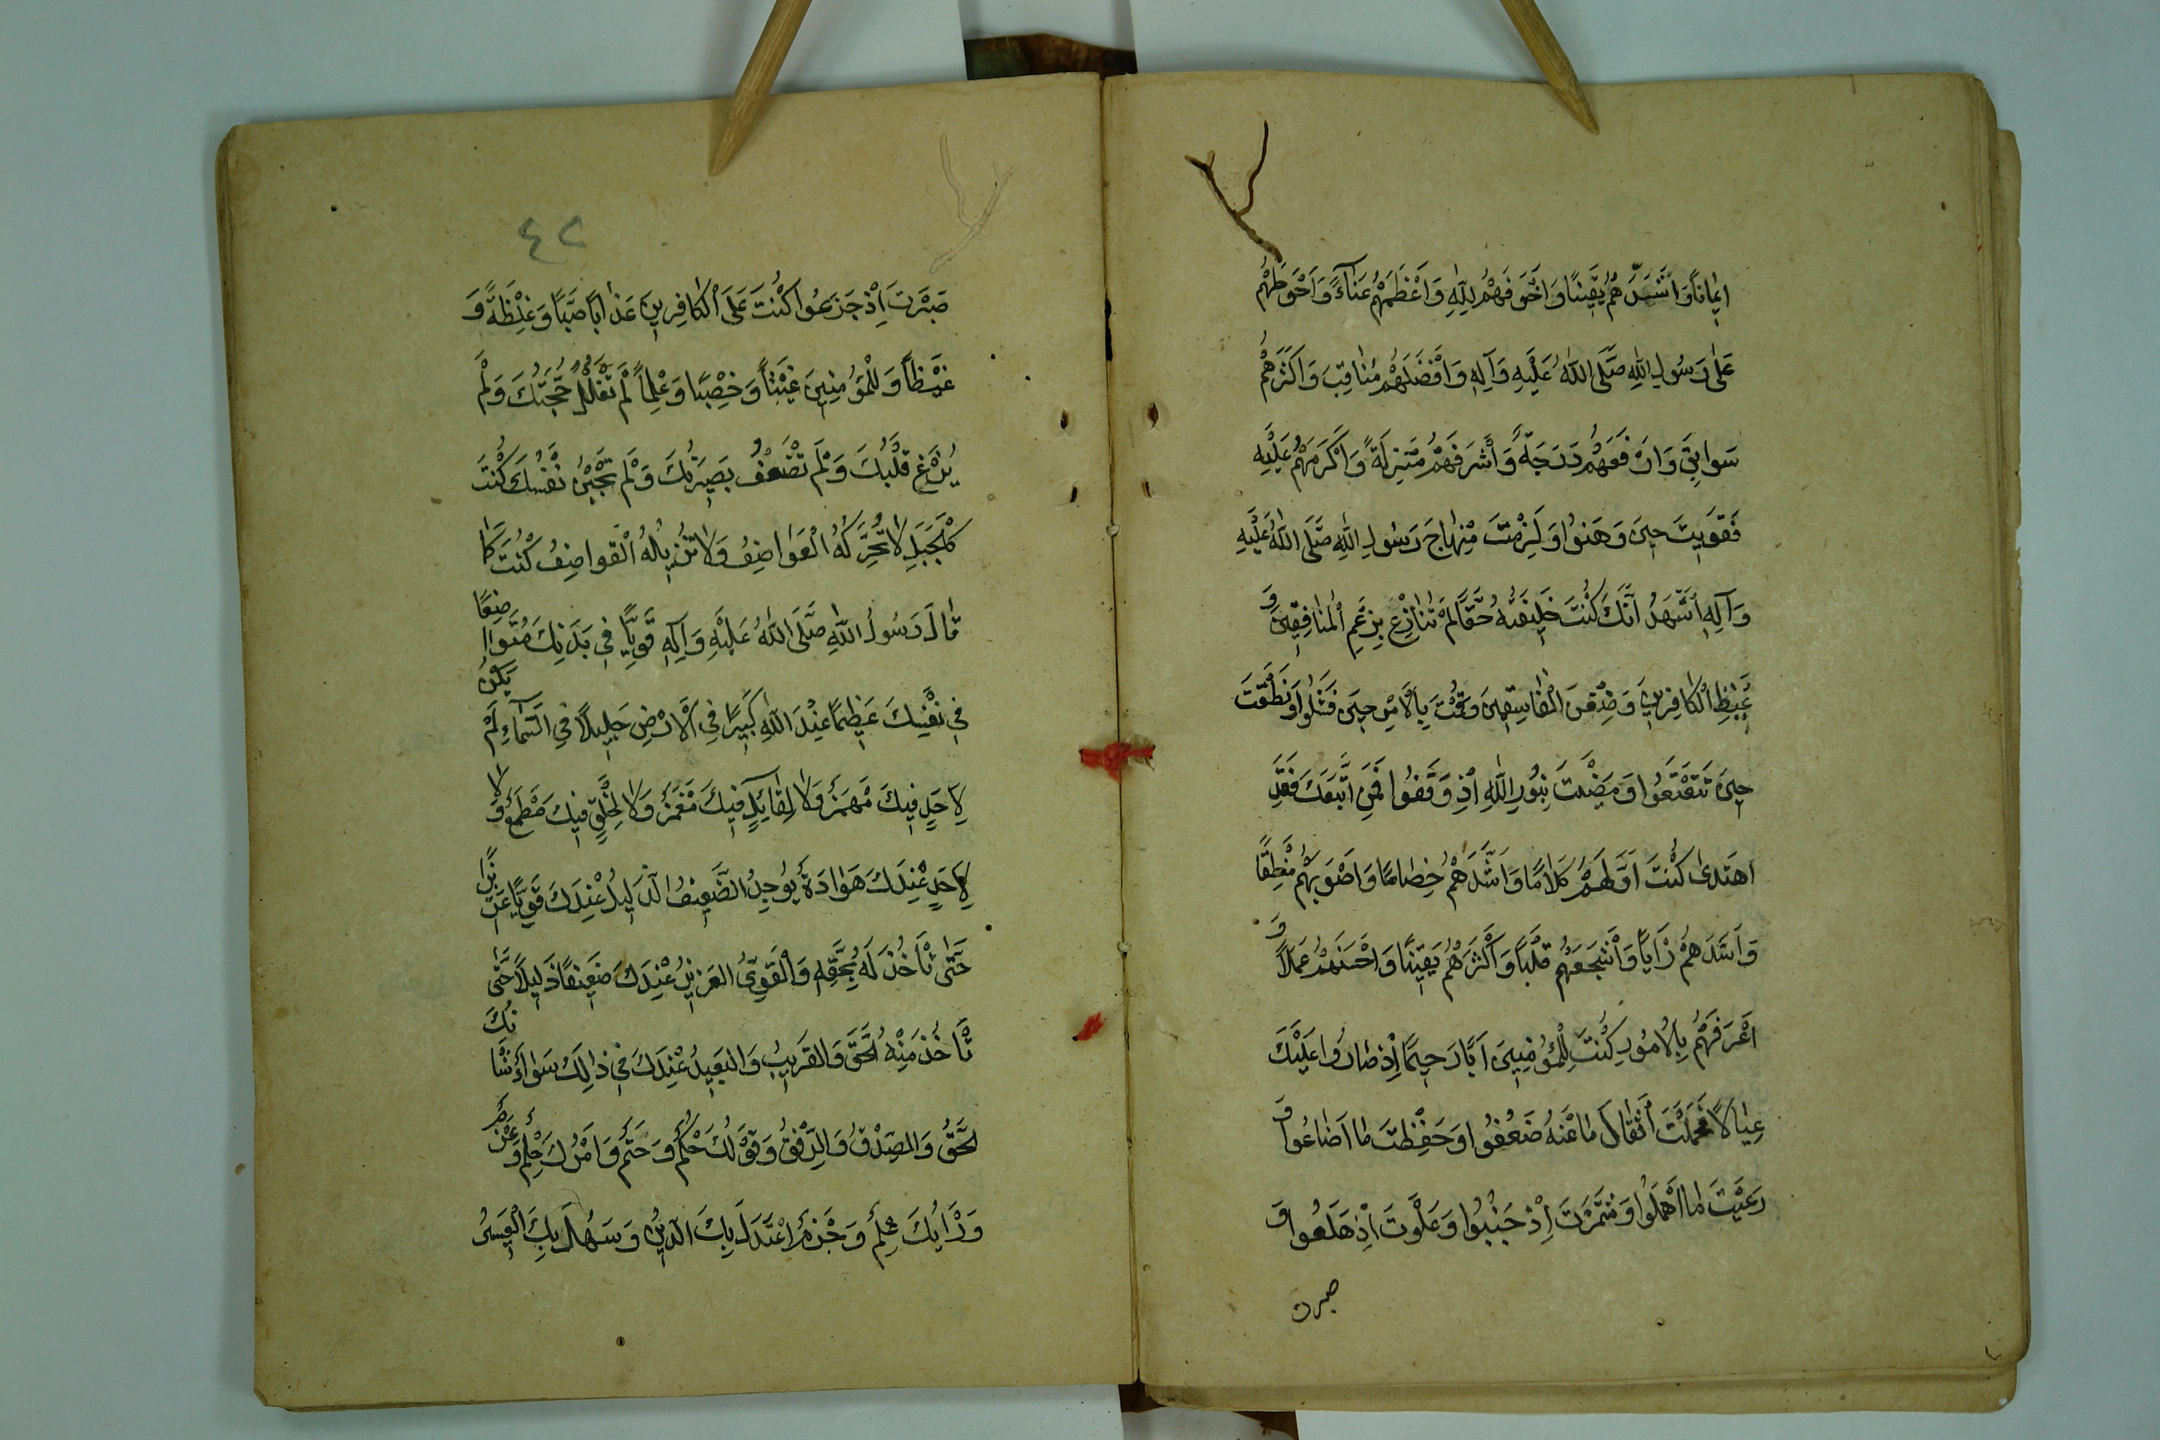 اِيمٰاناً وَاَشَدَّهُمْ يَقِينًا وَاَخْوَفَهُمْ لِلّٰهِ وَاَعْظَمَهُمْ عَنٰآءً وَاَحْوَطَهُمْ
عَلٰى رَسُولِ اللّٰهِ صَلَّى اللّٰهُ عَلَيْهِ وَآلِهِ وَاَفْضَلَهُمْ مَنٰاقِبَ وَاَكْثَرَهُمْ
سَوابِقَ وَاَرْفَعَهُمْ دَرَجَةً وَاَشْرَفَهُمْ مَنْزِلَةً وَاَكْرَمَهُمْ عَلَيْهِ
فَقَوِيتَ حِينَ وَهَنُوا وَلَزِمْتَ مِنْهٰاجَ رَسُولِ اللّٰهِ صَلَّى اللّٰهُ عَلَيْهِ
وَآلِهِ اَشْهَدُ اَنَّكَ كُنْتَ خَلِيفَتَهُ حَقًّا لَمْ تُنٰازَعْ بِرَغْمِ الْمُنٰافِقِينَ وَ
غَيْظِ الْكٰافِرِينَ وَضِغْنِ الْفٰاسِقِينَ وَقُمْتَ بِالْاَمْرِ حِينَ فَشَلُوا وَنَطَقْتَ
حِينَ تَتَعْتَعُوا وَمَضَيْتَ بِنُورِ اللّٰهِ اِذْ وَقَفُوا فَمَنِ اتَّبَعَكَ فَقَدِ
اهْتَدىٰ كُنْتَ اَوَّلَهُمْ كَلٰامًا وَاَشَدَّهُمْ خِصٰامًا وَاَصْوَبَهُمْ مَنْطِقًا
وَاَسَدَّهُمْ رَاْيًا وَاَشْجَعَهُمْ قَلْبًا وَاَكْثَرَهُمْ يَقِينًا وَاَحْسَنَهُمْ عَمَلًا وَ
اَعْرَفَهُمْ بِالْاُمُورِ كُنْتَ لِلْمُؤْمِنِينَ اَبًا رَحِيمًا اِذْ صٰارُوا عَلَيْكَ
عِيٰالًا فَحَمَلْتَ اَثْقٰالَ مٰا عَنْهُ ضَعُفُوا وَحَفِظْتَ مٰا اَضٰاعُوا وَ
رَعَيْتَ مٰا اَهْمَلُوا وَشَمَّرْتَ اِذْ جَبَنُوا وَعَلَوْتَ اِذْ هَلَعُوا وَ
صبرت
٤٢
صَبَرْتَ اِذْ جَزَعُوا كُنْتَ عَلَى الْكٰافِرِينَ عَذٰابًا صَبًّا وَغِلْظَةً وَ
غَيْظاً وَلِلْمُؤْمِنِينَ غَيْثاً وَخِصْبًا وَعِلْماً لَمْ تُفْلَلْ حُجَّتُكَ وَلَمْ
يُزَغْ قَلْبُكَ وَلَمْ تَضْعُفْ بَصِيرَتُكَ وَلَمْ تَجْبُنْ نَفْسُكَ كُنْتَ
كَالْجَبَلِ لٰا تُحَرِّكُهُ الْعَوٰاصِفُ وَلٰا تُزِيلُهُ الْقَواصِفُ كُنْتَ كَمٰا
قٰالَ رَسُولُ اللّٰهِ صَلَّى اللّٰهُ عَلَيْهِ وَآلِهِ قَوِيًّا فِي بَدَنِكَ مُتَواضِعًا
فِي نَفْسِكَ عَظِيمًا عِنْدَ اللّٰهِ كَبِيرًا فِي الْاَرْضِ جَلِيلًا فِي السَّمٰاءِ لَمْ يَكُنْ
لِاَحَدٍ فِيكَ مَهْمَزٌ وَلٰا لِقٰائِلٍ فِيكَ مَغْمَزٌ وَلٰا لِخَلْقٍ فِيكَ مَطْمَعٌ وَلٰا
لِاَحَدٍ عِنْدَكَ هَوٰادَةٌ يُوجَدُ الضَّعِيفُ الذَّلِيلُ عِنْدَكَ قَوِيًّا عَزِيزًا
حَتّٰى تَاْخُذَ لَهُ بِحَقِّهِ وَالْقَوِيُّ الْعَزِيزُ عِنْدَكَ ضَعِيفًا ذَلِيلًا حَتّٰى
تَاْخُذَ مِنْهُ الْحَقَّ وَالْقَرِيبُ وَالْبَعِيدُ عِنْدَكَ فِي ذٰلِكَ سَوٰاءٌ شَاْنُكَ
الْحَقُّ وَالصِّدْقُ وَالرِّفْقُ وَقَوْلُكَ حُكْمٌ وَحَتْمٌ وَاَمْرُكَ حِلْمٌ وَعَزْمٌ
وَرَاْيُكَ عِلْمٌ وَجَزْمٌ اعْتَدَلَ بِكَ الدِّينُ وَسَهُلَ بِكَ الْعَسِيرُ